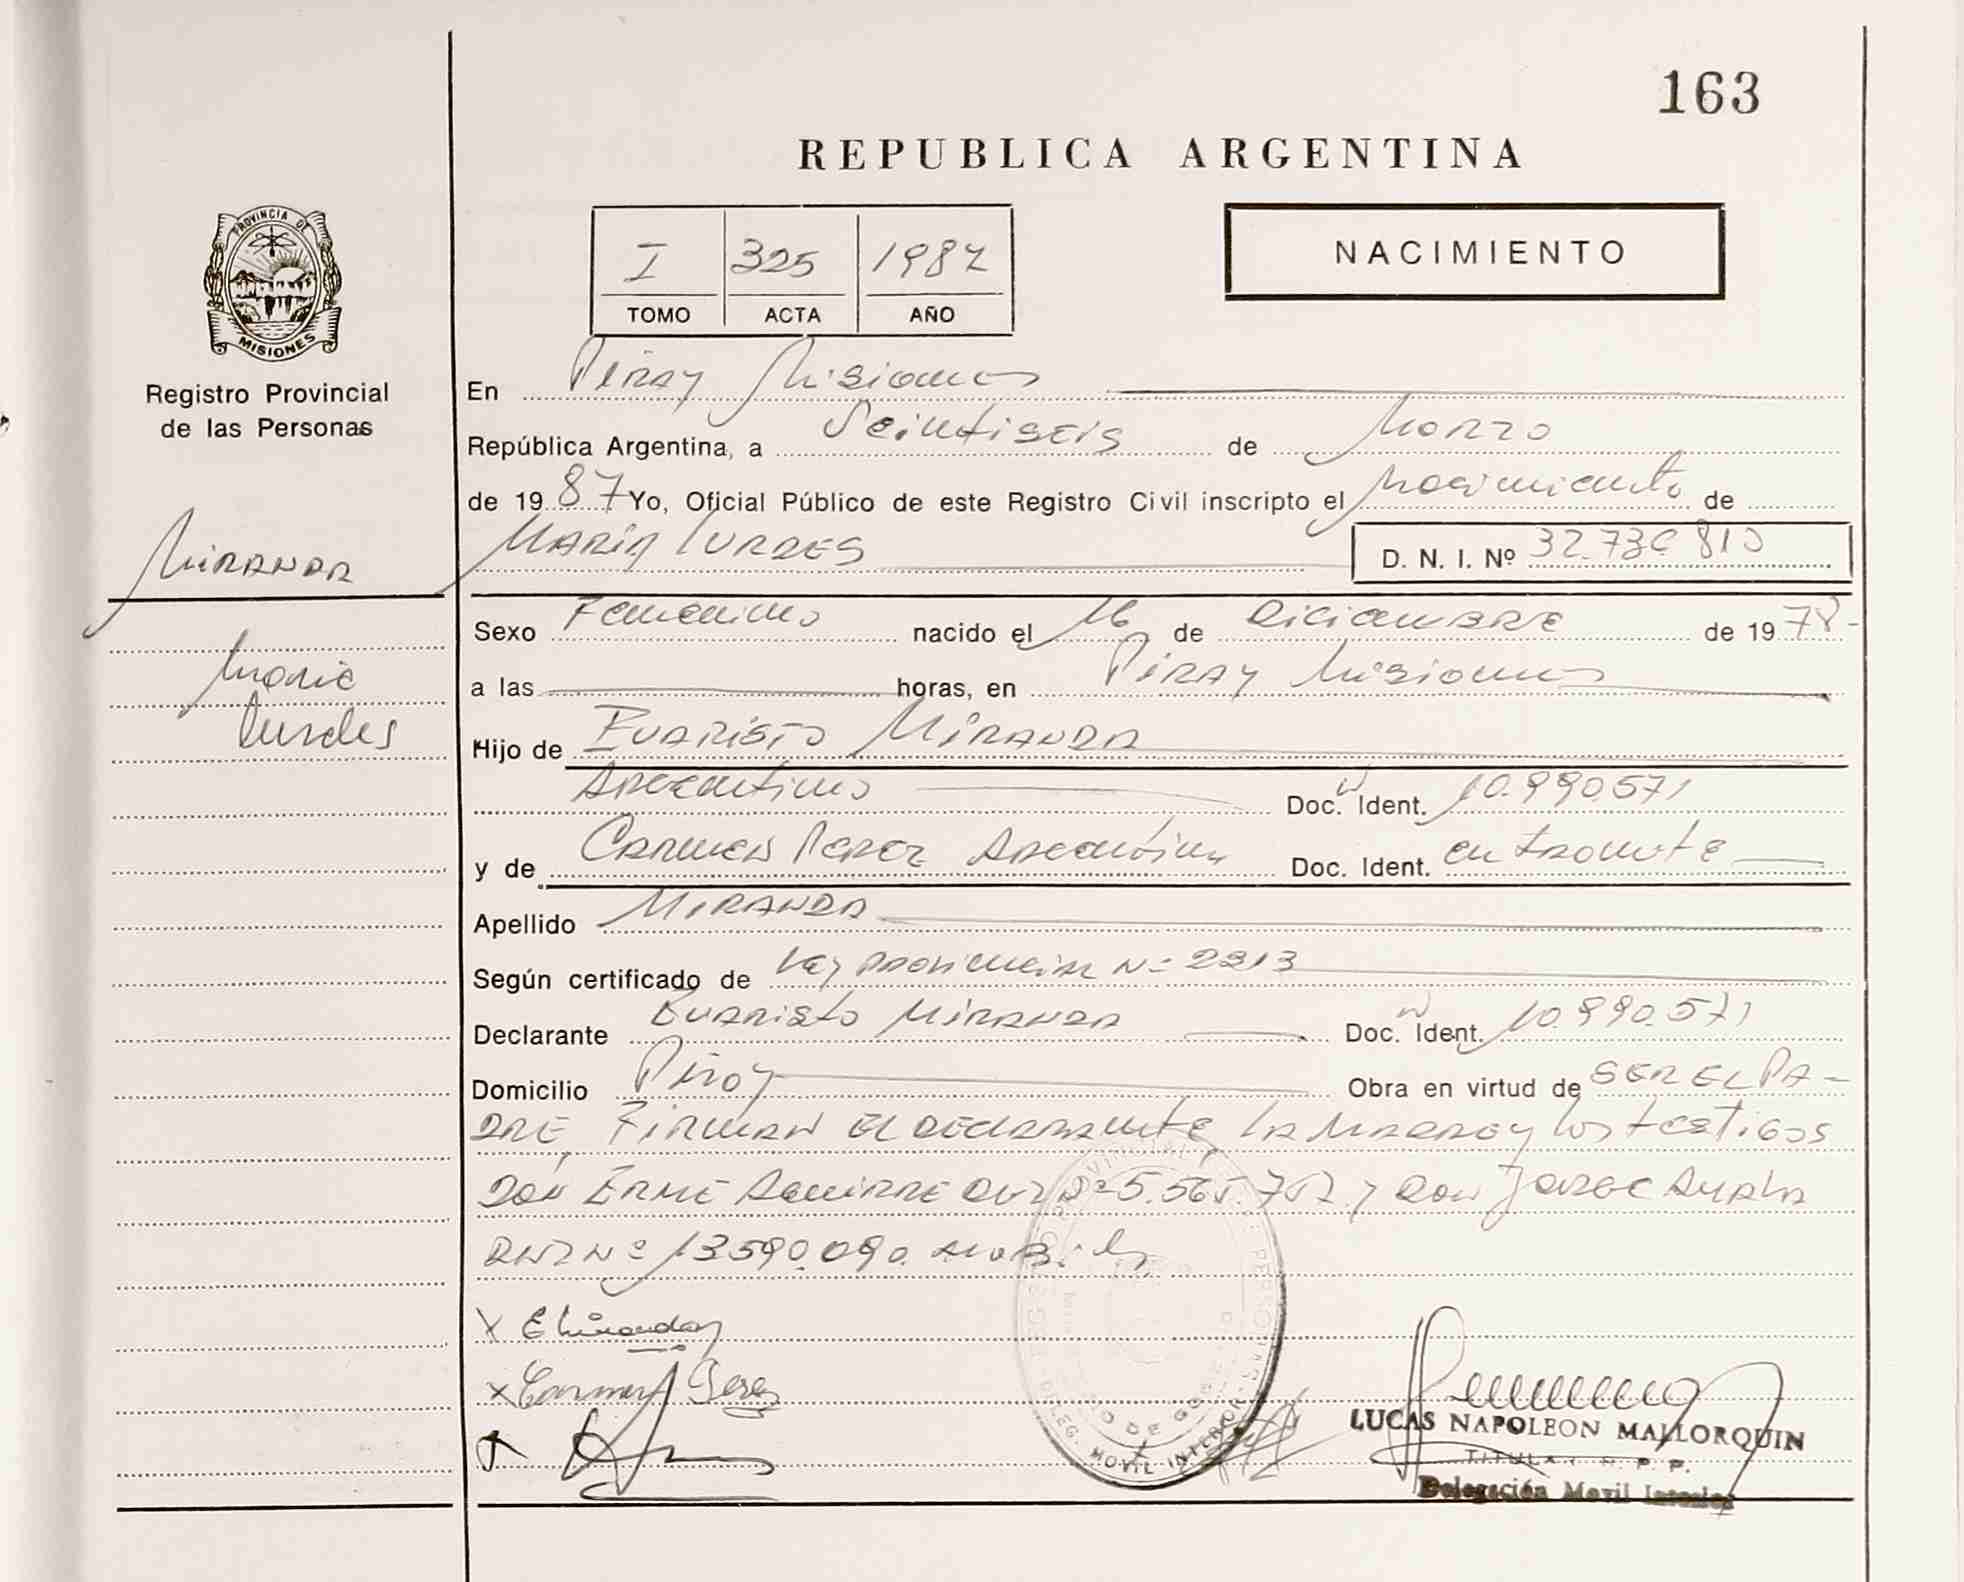 163
REPUBLICA ARGENTINA
PROVINCIA DE
MISIONES
Registro Provincial
de las Personas
I 325 1987
TOMO ACTA AÑO
NACIMIENTO
En Piray Misiones
República Argentina, a Veintiseis de Marzo
de 1987 Yo, Oficial Público de este Registro Civil inscripto el Nacimiento de
MARIA LURDES D. N. I. Nº
MIRANDA
Maria
Lurdes
Sexo Femenino nacido el 16 de Diciembre de 1978-
a las horas, en Piray Misiones
Hijo de EVARISTO MIRANDA
Argentino Doc. Ident. 10.990.571
y de Carmen Perez Argentina Doc. Ident. en tramite
Apellido MIRANDA
Según certificado de Ley provincial Nº 2213
Declarante Evaristo Miranda Doc. Ident. 10.990.571
Domicilio Piray Obra en virtud de SER EL PA-
DRE FIRMAN EL DECLARANTE LA MADRE y los testigos
DON AGUIRRE Nº 5.565.757 y DON JORGE
DNI Nº 13590.090.
X E Miranda
X Carmen Perez
DELEG. MOVIL INTERIOR
LUCAS NAPOLEON MALLORQUIN
TITULAR R. P. P.
Delegación Movil Interior